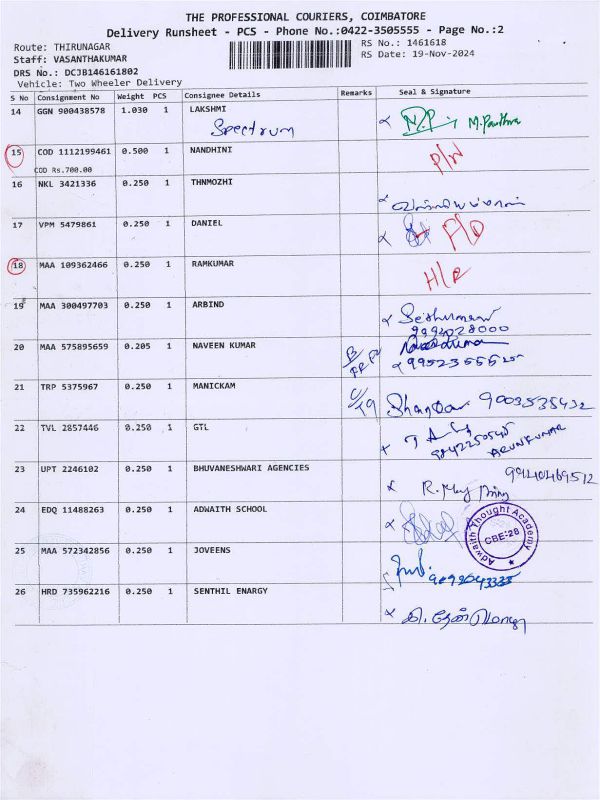 THE PROFESSIONAL COURIERS, COIMBATORE
Delivery Runsheet - PCS - Phone No.:0422-3505555 - Page No.:2
Route: THIRUNAGAR
RS No.: 1461618
Staff: VASANTHAKUMAR
RS Date: 19-Nov-2024
DRS No.: DCJB146161802
Vehicle: Two Wheeler Delivery
S No Consignment No Weight PCS Consignee Details Remarks Seal & Signature
14 GGN 900438578 1.030 1 LAKSHMI
Spectrum
15 COD 1112199461 0.500 1 NANDHINI
COD Rs.700.00
16 NKL 3421336 0.250 1 THNMOZHI
17 VPM 5479861 0.250 1 DANIEL
18 MAA 109362466 0.250 1 RAMKUMAR
19 MAA 300497703 0.250 1 ARBIND
20 MAA 575895659 0.205 1 NAVEEN KUMAR
21 TRP 5375967 0.250 1 MANICKAM
9003535432
22 TVL 2857446 0.250 1 GTL
ARUNKUMAR
23 UPT 2246102 0.250 1 BHUVANESHWARI AGENCIES
24 EDQ 11488263 0.250 1 ADWAITH SCHOOL
Adwaith Thought Academy
CBE-28
25 MAA 572342856 0.250 1 JOVEENS
26 HRD 735962216 0.250 1 SENTHIL ENARGY